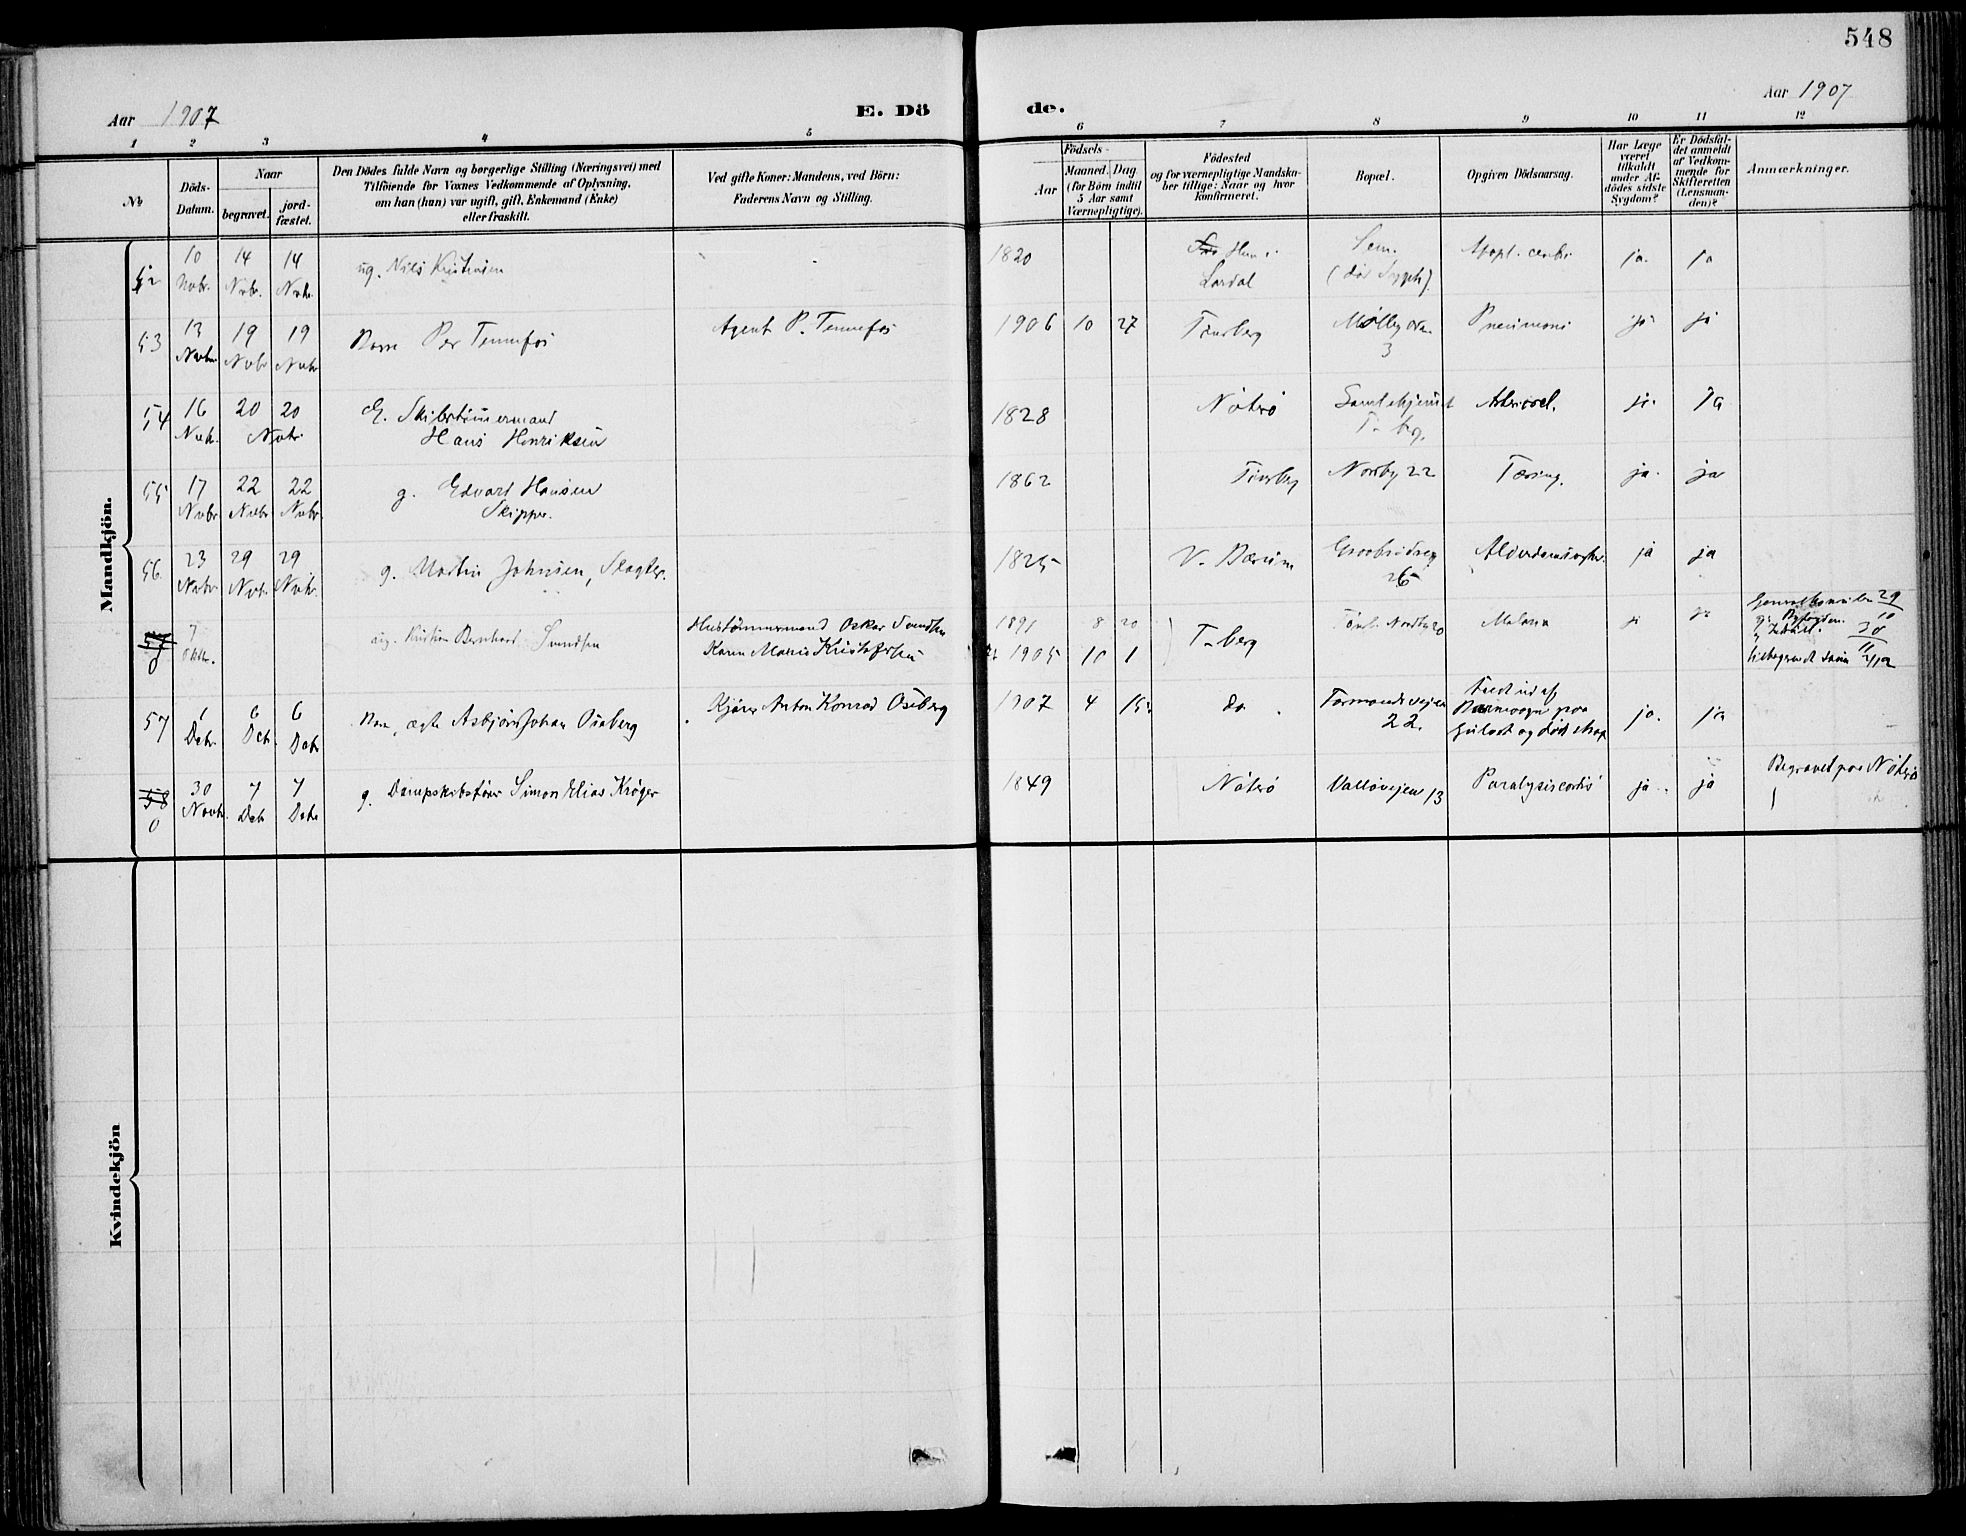 548
Aar 1907
E. Dö
de.
Aar 1907
1 2 3 4 5 6 7 8 9 10 11 12
№
Döds-
Datum.
Naar
begravet.
jord-
fæstet.
Den Dödes fulde Navn og borgerlige Stilling (Næringsvei) med
Tilföiende for Voxnes Vedkommende af Oplysning,
om han (hun) var ugift, gift, Enkemand (Enke)
eller fraskilt.
Ved gifte Koner: Mandens, ved Börn:
Faderens Navn og Stilling.
Födsels-
Aar
Maaned.
Dag
(for Börn indtil
5 Aar samt
Værnepligtige).
Födested
og for værnepligtige Mandska-
ber tillige: Naar og hvor
konfirmeret.
Bopæl.
Opgiven Dödsaarsag.
Har Læge
været
tilkaldt
under Af-
dödes sidste
Sygdom?
Er Dödsfal-
det anmeldt
af Vedkom-
mende for
Skifteretten
(Lensman-
den)?
Anmærkninger.
Mandkjön.
52 10 Novbr. 14 Nvbr. 14 Nvbr. ug. Nils Kristensen 1820 Lardal Sem. ja. ja
53 13 Novbr. 19 Novbr 19 Novbr Barn Per Tennefos Agent P. Tennefos 1906 10 27 Tönsberg Møllegaden 3 Pneumoni ja ja
54 16 Nvbr. 20 20 Novbr. E. Skibstömmermand
Hans Henriksen 1828 Nøterø Gamlehjemmet
T-bg. ja ja
55 17 Nvbr. 22 Novbr 22 Nvbr. g. Edvart Hansen
Skipper. 1862 Tönsberg Nordby 22 Tæring. ja. ja
56 23 Novbr. 29 Nov. 29 Nvbr. g. Martin Johnsen, Slagter. 1825 V. Bærum 26 ja ja
57 0 7 Oktbr. ug. Kristian Bernhard Svendsen Hustömmermand Oskar Svendsen
Karen Marie Kristofersen 1891 8 20
1905 10 1 T-berg Nordby 20 ja ja 29
10
30
11
57 1 Decbr. 6 Dcb. 6 Decbr Barn, ægte Asbjørn Johan Oseberg Kjører Anton Konrad Oseberg 1907 4 15 do. Farmandsvejen
22. Faldt ud af
Barnevogn paa
Gulvet og ja. ja
58 0 30 Novbr. 7 Decbr 7 Decbr g. Dampskibsfører Simon Elias Krøger 1849 Nøterø Valløvejen 13 Paralysis cordis ja. ja Begravet paa Nøterø
Kvindekjön